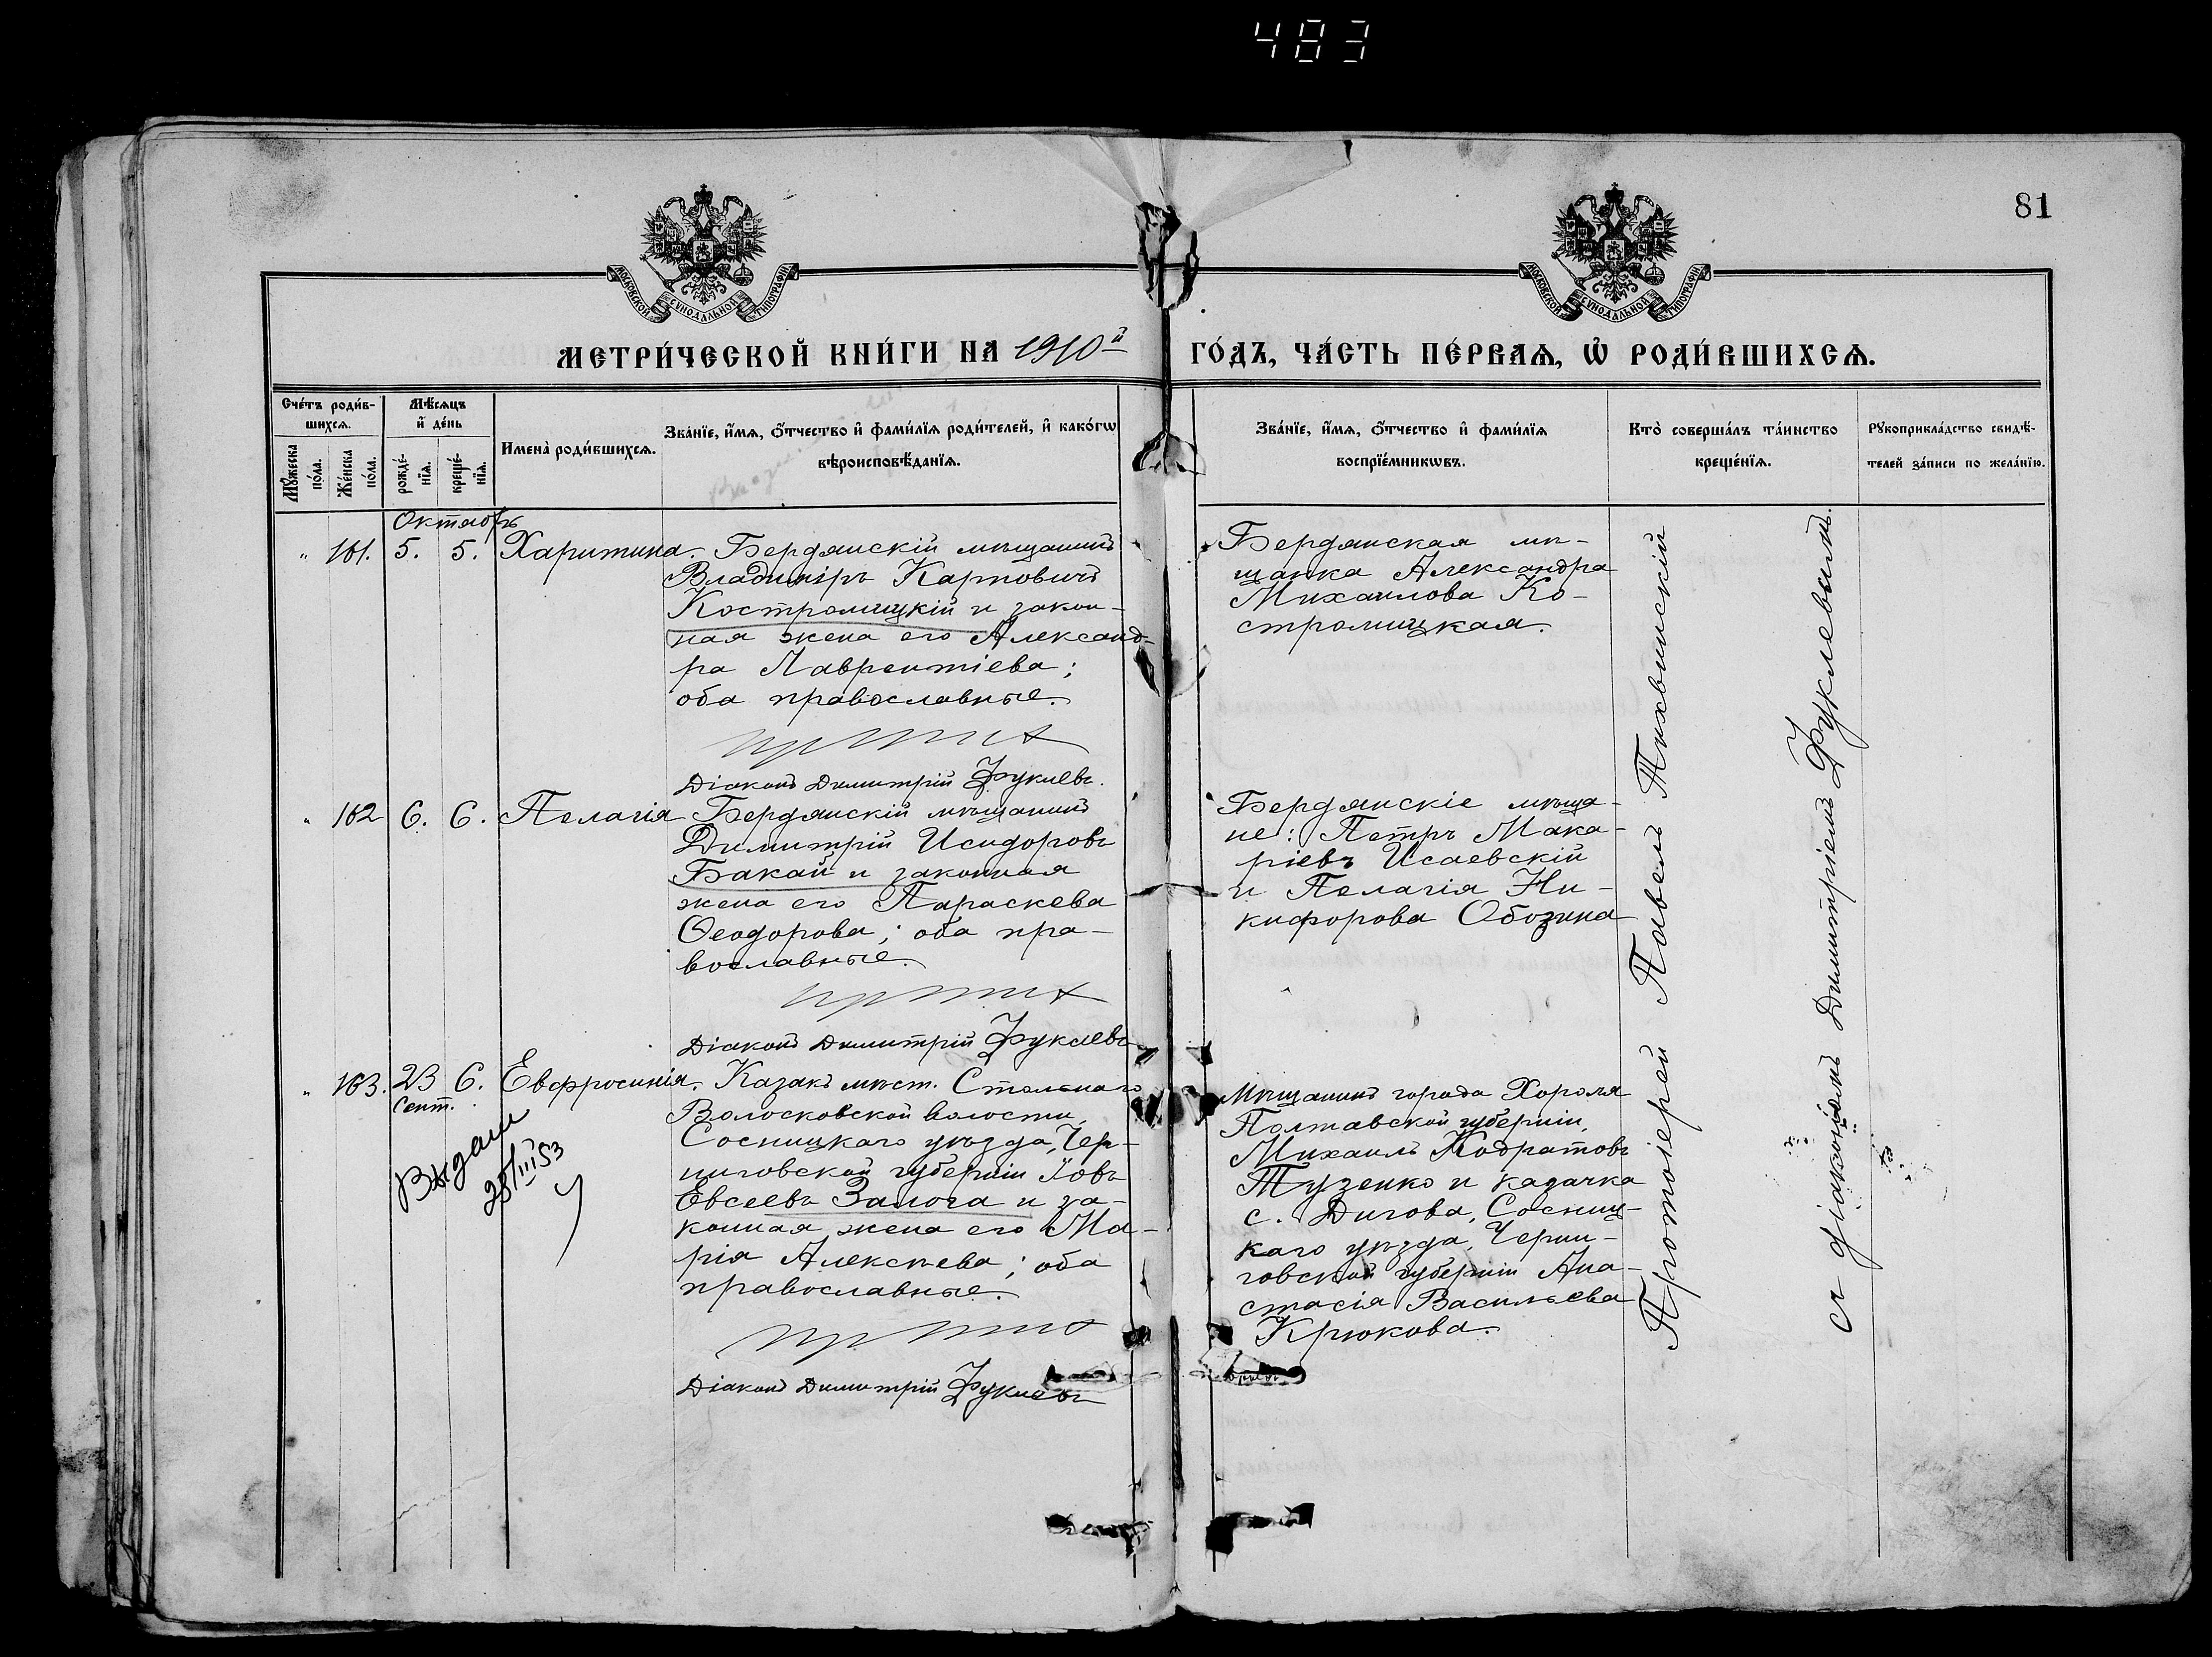 483
81
МОСКОВСКОЙ СѴНОДАЛЬНОЙ ТИПОГРАФІИ
МОСКОВСКОЙ СѴНОДАЛЬНОЙ ТИПОГРАФІИ
МЕТРИ́ЧЕСКОЙ КНИ́ГИ НА 1910й ГО́ДЪ, ЧА́СТЬ ПЕ́РВАѦ, Ѡ҆ РОДИ́ВШИХСѦ.
Сче́тъ роди́в-
шихсѧ.
Мꙋ́жеска по́ла.
Же́нска по́ла.
Мѣ́сѧцъ
и҆ де́нь
рожде́-
нїѧ.
креще́-
нїѧ.
Имена̀ роди́вшихсѧ.
Зва́нїе, и҆́мѧ, ѻ҆́тчество и҆ фами́лїѧ роди́телей, и҆ како́гѡ
вѣроисповѣ́данїѧ.
Зва́нїе, и҆́мѧ, ѻ҆́тчество и҆ фами́лїѧ
воспрїе́мникѡвъ.
Кто̀ соверша́лъ та́инство
креще́нїѧ.
Рꙋкоприкла́дство свидѣ́-
телей за́писи по жела́нїю.
Октябрь
" 161. 5. 5. Харитина. Бердянскій мѣщанинъ
Владиміръ Карповичъ
Костромицкій и закон-
ная жена его Александ-
ра Лаврентіева;
оба православные.
Діаконъ Димитрій Фуклевъ.
Бердянская мѣ-
щанка Александра
Михаилова Ко-
стромицкая.
" 162 6. 6. Пелагія Бердянскій мѣщанинъ
Димитрій Исидоровъ
Бакай и законная
жена его Параскева
Ѳеодорова; оба пра-
вославные.
Діаконъ Димитрій Фуклевъ
Бердянскіе мѣща-
не: Петръ Мака-
ріевъ Исаевскій
и Пелагія Ни-
кифорова Обозина
" 163. 23 6. Евфросинія. Казакъ мѣст. Стольнаго
Сент.
Волосковской волости,
Сосницкаго уѣзда, Чер-
ниговской губерніи Іовъ
Евсеевъ Залога и за-
конная жена его Ма-
рія Алексѣева; оба
православные.
Діаконъ Димитрій Фуклевъ
Выдан
28/III 53
Мѣщанинъ города Хороля
Полтавской губерніи,
Михаилъ Кодратовъ
Тузенко и казачка
с. Дигова, Сосниц-
каго уѣзда, Черни-
говской губерніи Ана-
стасія Васильева
Крюкова.
Протоіерей Павелъ Тихвинскій
съ діакономъ Димитріемъ Фуклевымъ.